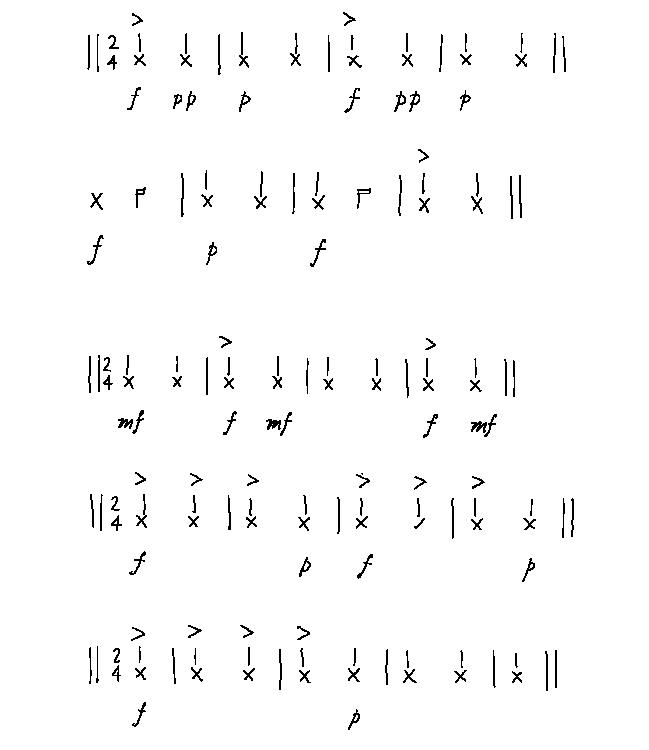 2 4
f pp p f pp p
f p f
2 4
mf f mf f mf
2 4
f p f p
2 4
f p